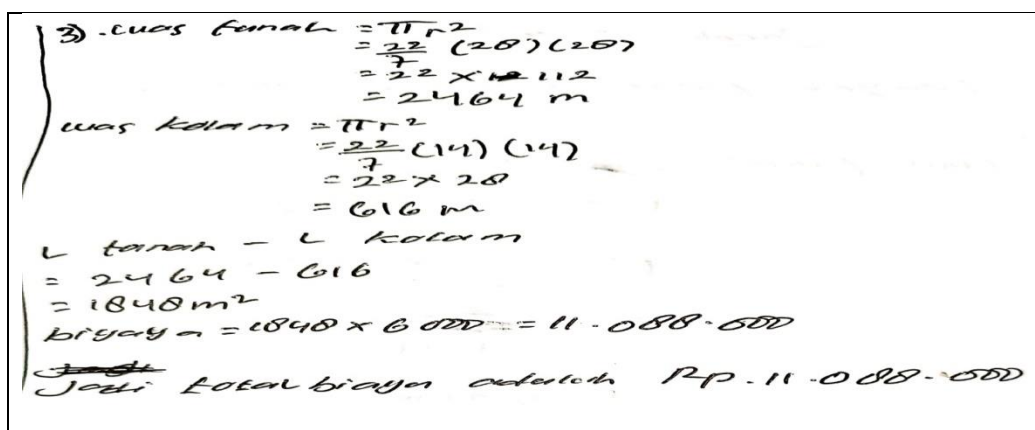 3). Luas tanah = πr²
= 22/7 (28) (28)
= 22 × 112
= 2464 m
Luas kolam = πr²
= 22/7 (14) (14)
= 22 × 28
= 616 m
L tanah - L kolam
= 2464 - 616
= 1848 m²
biyaya = 1848 × 6000 = 11.088.000
Jadi total biaya adalah Rp.11.088.000